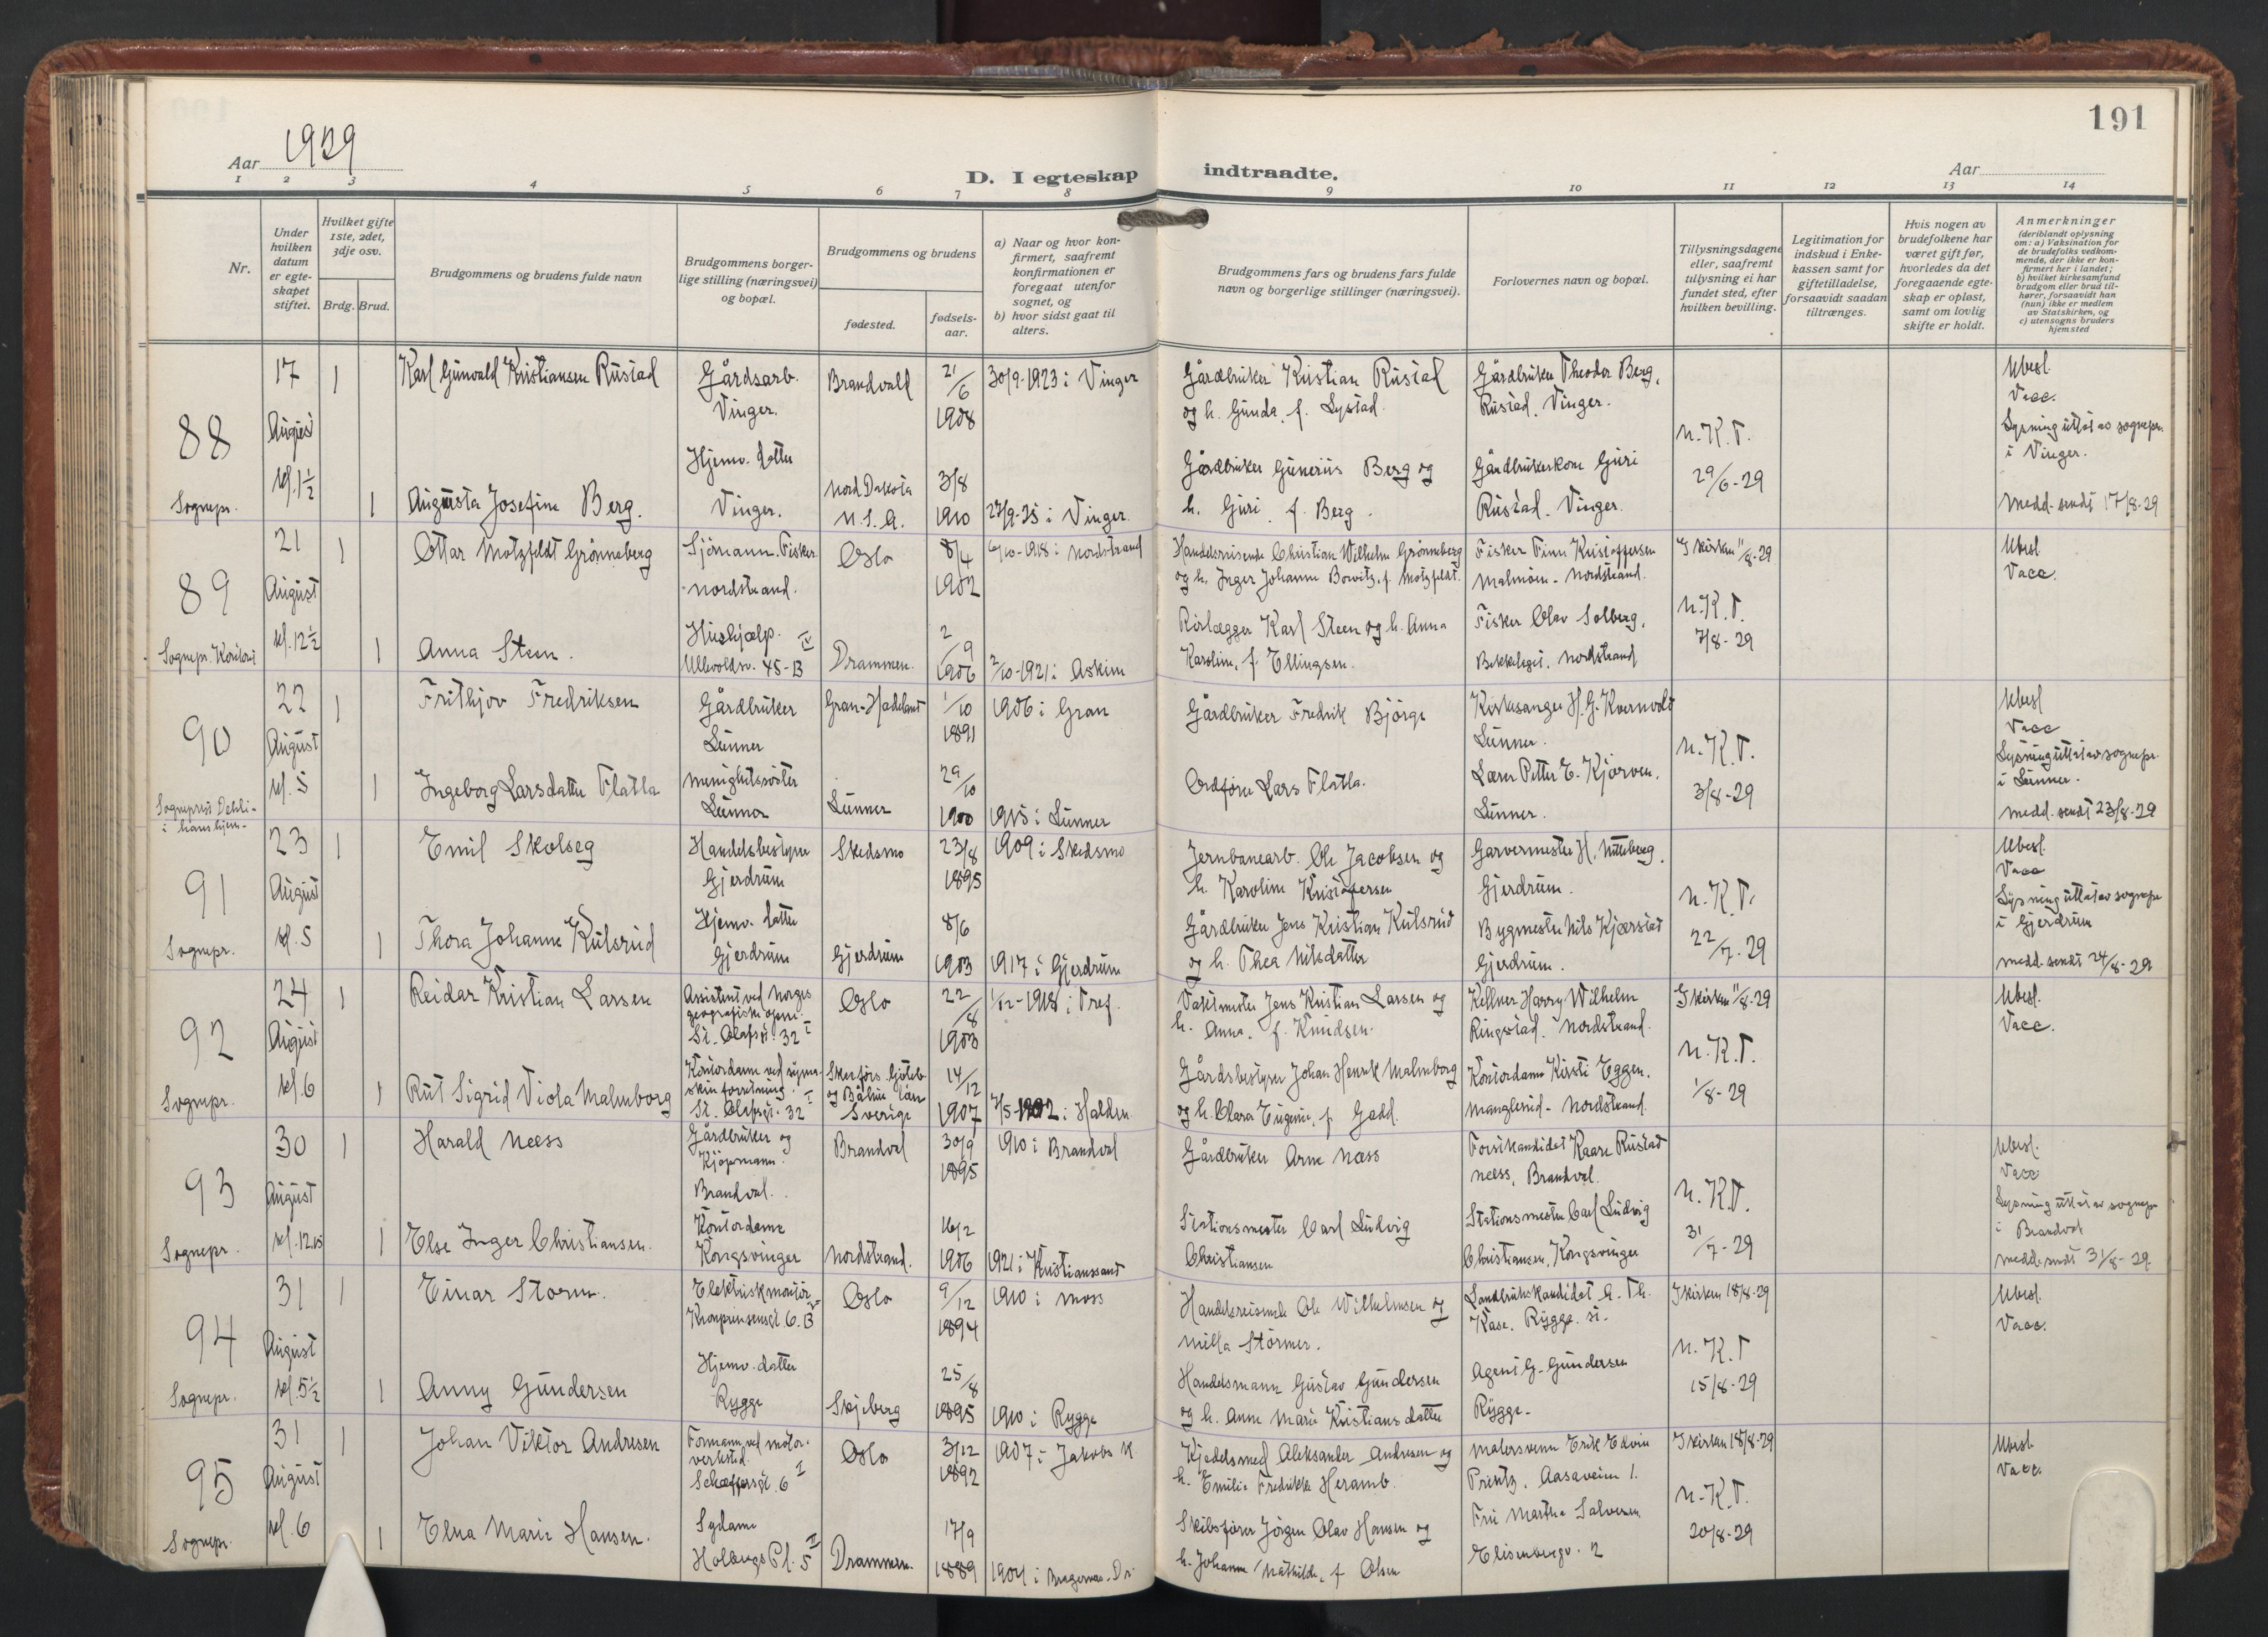 191
Aar 1929
D. I egteskap indtraadte.
Aar
1 2 3 4 5 6 7 8 9 10 11 12 13 14
Nr.
Under hvilken datum er egte-skapet stiftet.
Hvilket gifte 1ste, 2det, 3dje osv.
Brdg. Brud.
Brudgommens og brudens fulde navn
Brudgommens borger-lige stilling (næringsvei) og bopæl.
Brudgommens og brudens
fødested.
fødsels-aar.
a) Naar og hvor kon-firmert, saafremt konfirmationen er foregaat utenfor sognet, og
b) hvor sidst gaat til alters.
Brudgommens fars og brudens fars fulde navn og borgerlige stillinger (næringsvei).
Forlovernes navn og bopæl.
Tillysningsdagene eller, saafremt tillysning ei har fundet sted, efter hvilken bevilling.
Legitimation for indskud i Enke-kassen samt for giftetilladelse, forsaavidt saadan tiltrænges.
Hvis nogen av brudefolkene har været gift før, hvorledes da det foregaaende egte-skap er opløst, samt om lovlig skifte er holdt.
Anmerkninger
(deriblandt oplysning om: a) Vaksination for de brudefolks vedkom-mende, der ikke er kon-firmert her i landet; b) hvilket kirkesamfund brudgom eller brud til-hører, forsaavidt han (hun) ikke er medlem av Statskirken, og c) utensogns bruders hjemsted
88 17 August kl. 1½ Sognepr.
1 Karl Gunvald Kristiansen Rustad Gårdsarb. Vinger. Brandvald 21/6 1908 30/9-1923 i Vinger
Gårdbruker Kristian Rustad og h. Gunda f. Lystad. Gårdbruker Theodor Berg, Rustad, Vinger.
1 Augusta Josefine Berg. Hjemv. datter Vinger. Nord Dakota U.S.A. 3/8 1910 27/9-25 i Vinger.
Gårdbruker Gunerius Berg og h. Guri f. Berg. Gårdbrukerkone Guri Rustad. Vinger.
N.K.T. 29/6-29
Ubesl. Vacc. Lysning uttat av sognepr. i Vinger. Medd. sendt 17/8-29
89 21 August kl. 12½ Sognepr. Kontor
1 Ottar Motzfeldt Grønneberg Sjömann. Fisker Nordstrand. Oslo 8/4 1902 6/10-1918 i Nordstrand
Handelsreisende Christian Wilhelm Grønneberg og h. Inger Johanne f. Motzfeldt. Fisker Finn Kristoffersen Malmöen - Nordstrand.
1 Anna Steen. Hushjælp. Ullevoldsv. 45-B IV Drammen. 2/9 1906 2/10-1921 i Askim
Rörlægger Karl Steen og h. Anna Karoline, f. Ellingsen. Fisker Olav Solberg, Bekkelaget. Nordstrand
I kirken 11/8-29 N.K.T. 7/8-29
Ubesl Vacc.
90 22 August kl. 5 Sogneprest Dehli i hans hjem-
1 Frithjov Fredriksen Gårdbruker Lunner Gran-Hadeland 1/10 1891 1906 i Gran
Gårdbruker Fredrik Björge Kirkesanger H. G. Kvernvold Lunner.
1 Ingeborg Larsdatter Flatla Menighetssöster Lunner Lunner 29/10 1900 1915 i Lunner
Ordfører Lars Flatla. Lærer Petter E. Kjorven. Lunner.
N.K.T. 3/8-29
Ubesl Vacc Lysning uttat av sognepr. i Lunner. Medd. sendt 23/8-29
91 23 August kl. 5 Sognepr.
1 Emil Skolseg Handelsbestyrer Gjerdrum Skedsmo 23/8 1895 1909 i Skedsmo
Jernbanearb. Ole Jacobsen og h. Karoline Kristoffersen Garvermester H. Nitteberg. Gjerdrum.
1 Thora Johanne Kulsrud Hjemv. datter Gjerdrum Gjerdrum 8/6 1903 1917 i Gjerdrum
Gårdbruker Jens Kristian Kulsrud og h. Thea Nilsdatter Bygmester Nils Kjærstad Gjerdrum.
N.K.T. 22/7-29
Ubesl. Vacc Lysning uttat av sognepr i Gjerdrum Medd. sendt 24/8-29
92 24 August kl. 6 Sognepr.
1 Reidar Kristian Larsen Assistent ved Norges geografiske opm. St. Olafsgt. 32 I Oslo 22/8 1903 1/12-1918 i Tref.
Vaktmester Jens Kristian Larsen og h. Anna, f. Knudsen. Kellner Harry Wilhelm Ringstad. Nordstrand.
1 Rut Sigrid Viola Malmborg Kontordame ved symaskinforretning. St. Olafsgt. 32 I Göteb. og Bohus län Sverige 14/12 1907 i Halden
Gårdsbestyrer Johan Henrik Malmborg og h. Clara Eugenie, f. Gadd. Kontordame Kirsti Eggen. Manglerud - Nordstrand.
I kirken 11/8-29 N.K.T. 1/8-29
Ubesl. Vacc.
93 30 August kl. 12.15 Sognepr.
1 Harald Næss Gårdbruker og Kjöpmann. Brandval. Brandval 30/9 1895 1910 i Brandval
Gårdbruker Arne Næss Forstkandidat Kaare Rustad Næss, Brandval.
1 Else Inger Christiansen. Kontordame Kongsvinger Nordstrand. 16/2 1906 1921 i Kristianssand
Stationsmester Carl Ludvig Christiansen Stationsmester Carl Ludvig Christiansen, Kongsvinger
N.K.T. 31/7-29
Ubesl. Vacc Lysning uttat av sognepr i Brandval Medd. sendt 31/8-29
94 31 August kl. 5½ Sognepr.
1 Einar Storm. Elektrisk montör Kronprinsensgt 6.B Oslo 9/12 1894 1910 i Moss
Handelsreisende Ole Wilhelmsen og Milla Störmer. Landbrukskandidat A. Th. Kase, Rygge st.
1 Anny Gundersen Hjemv. datter Rygge Skjeberg 25/8 1895 1910 i Rygge
Handelsmann Gustav Gundersen og h. Anne Marie Kristiansdatter Agent G. Gundersen Rygge.
I kirken 18/8-29 N.K.T 15/8-29
Ubesl. Vacc.
95 31 August kl. 6 Sognepr.
1 Johan Viktor Andresen Formann ved motorverksted. Schæffersgt. 6 I Oslo 3/12 1892 1907 i Jakobs K.
Kjedelsmed Aleksander Andresen og h. Emilie Fredrikke Heramb. Malersvenn Erik Edvin Printz. Aasaveien 1.
1 Elna Marie Hansen. Sydame Holbergs Pl. 5 II Drammen. 17/9 1889 1904 i Bragernes. Dr.
Skibsfører Jörgen Olav Hansen og h. Johanne Mathilde, f. Olsen Fru Marthe Salvesen Elisenbergv. 2
I kirken 18/8-29 N.K.T. 20/8-29
Ubesl Vacc.